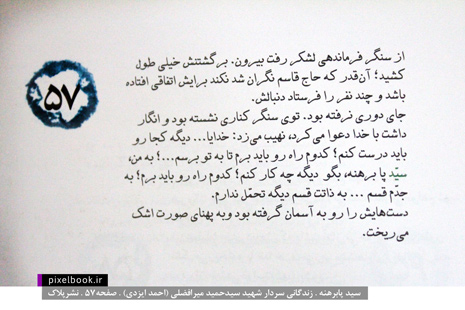 از سنگر فرماندهی لشکر رفت بیرون. برگشتنش خیلی طول
کشید؛ آن‌قدر که حاج قاسم نگران شد نکند برایش اتفاقی افتاده
باشد و چند نفر را فرستاد دنبالش.
جای دوری نرفته بود. توی سنگر کناری نشسته بود و انگار
داشت با خدا دعوا می‌کرد، نهیب می‌زد: خدایا... دیگه کجا رو
باید درست کنم؛ کدوم راه رو باید برم تا به تو برسم...؛ به من،
سیّد پا برهنه، بگو دیگه چه کار کنم؛ کدوم راه رو باید برم؛ به
جدّم قسم ... به ذاتت قسم دیگه تحمّل ندارم.
دست‌هایش را رو به آسمان گرفته بود و به پهنای صورت اشک
می‌ریخت.
۵۷
pixelbook.ir
سید پابرهنه . زندگانی سردار شهید سیدحمید میرافضلی (احمد ایزدی) . صفحه۵۷ . نشریلاک